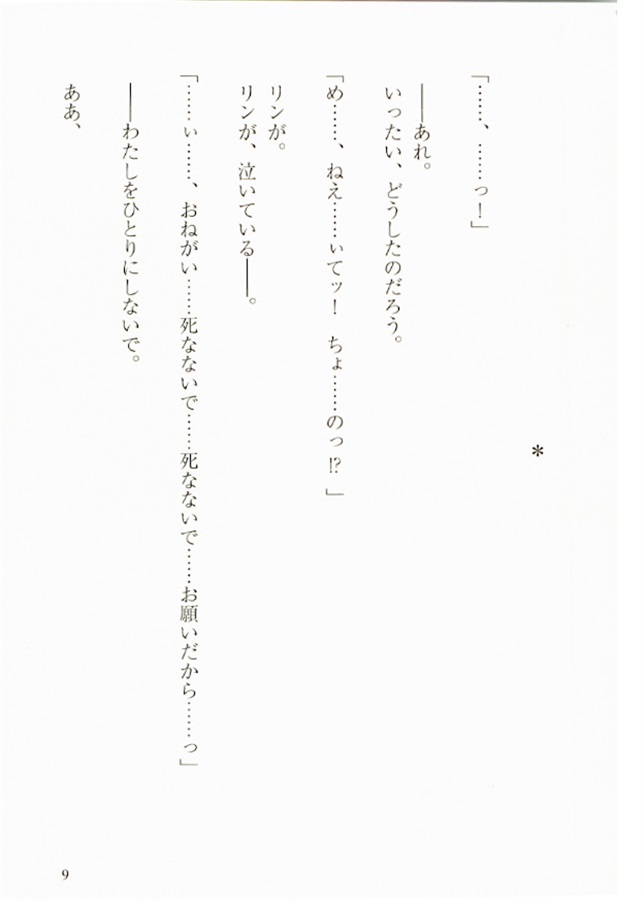 ＊
「……、……っ！」
――あれ。
いったい、どうしたのだろう。
「め……、ねえ……ぃてッ！　ちょ……のっ⁉」
リンが。
リンが、泣いている――。
「……ぃ……、おねがい……死なないで……死なないで……お願いだから……っ」
――わたしをひとりにしないで。
ああ、
9